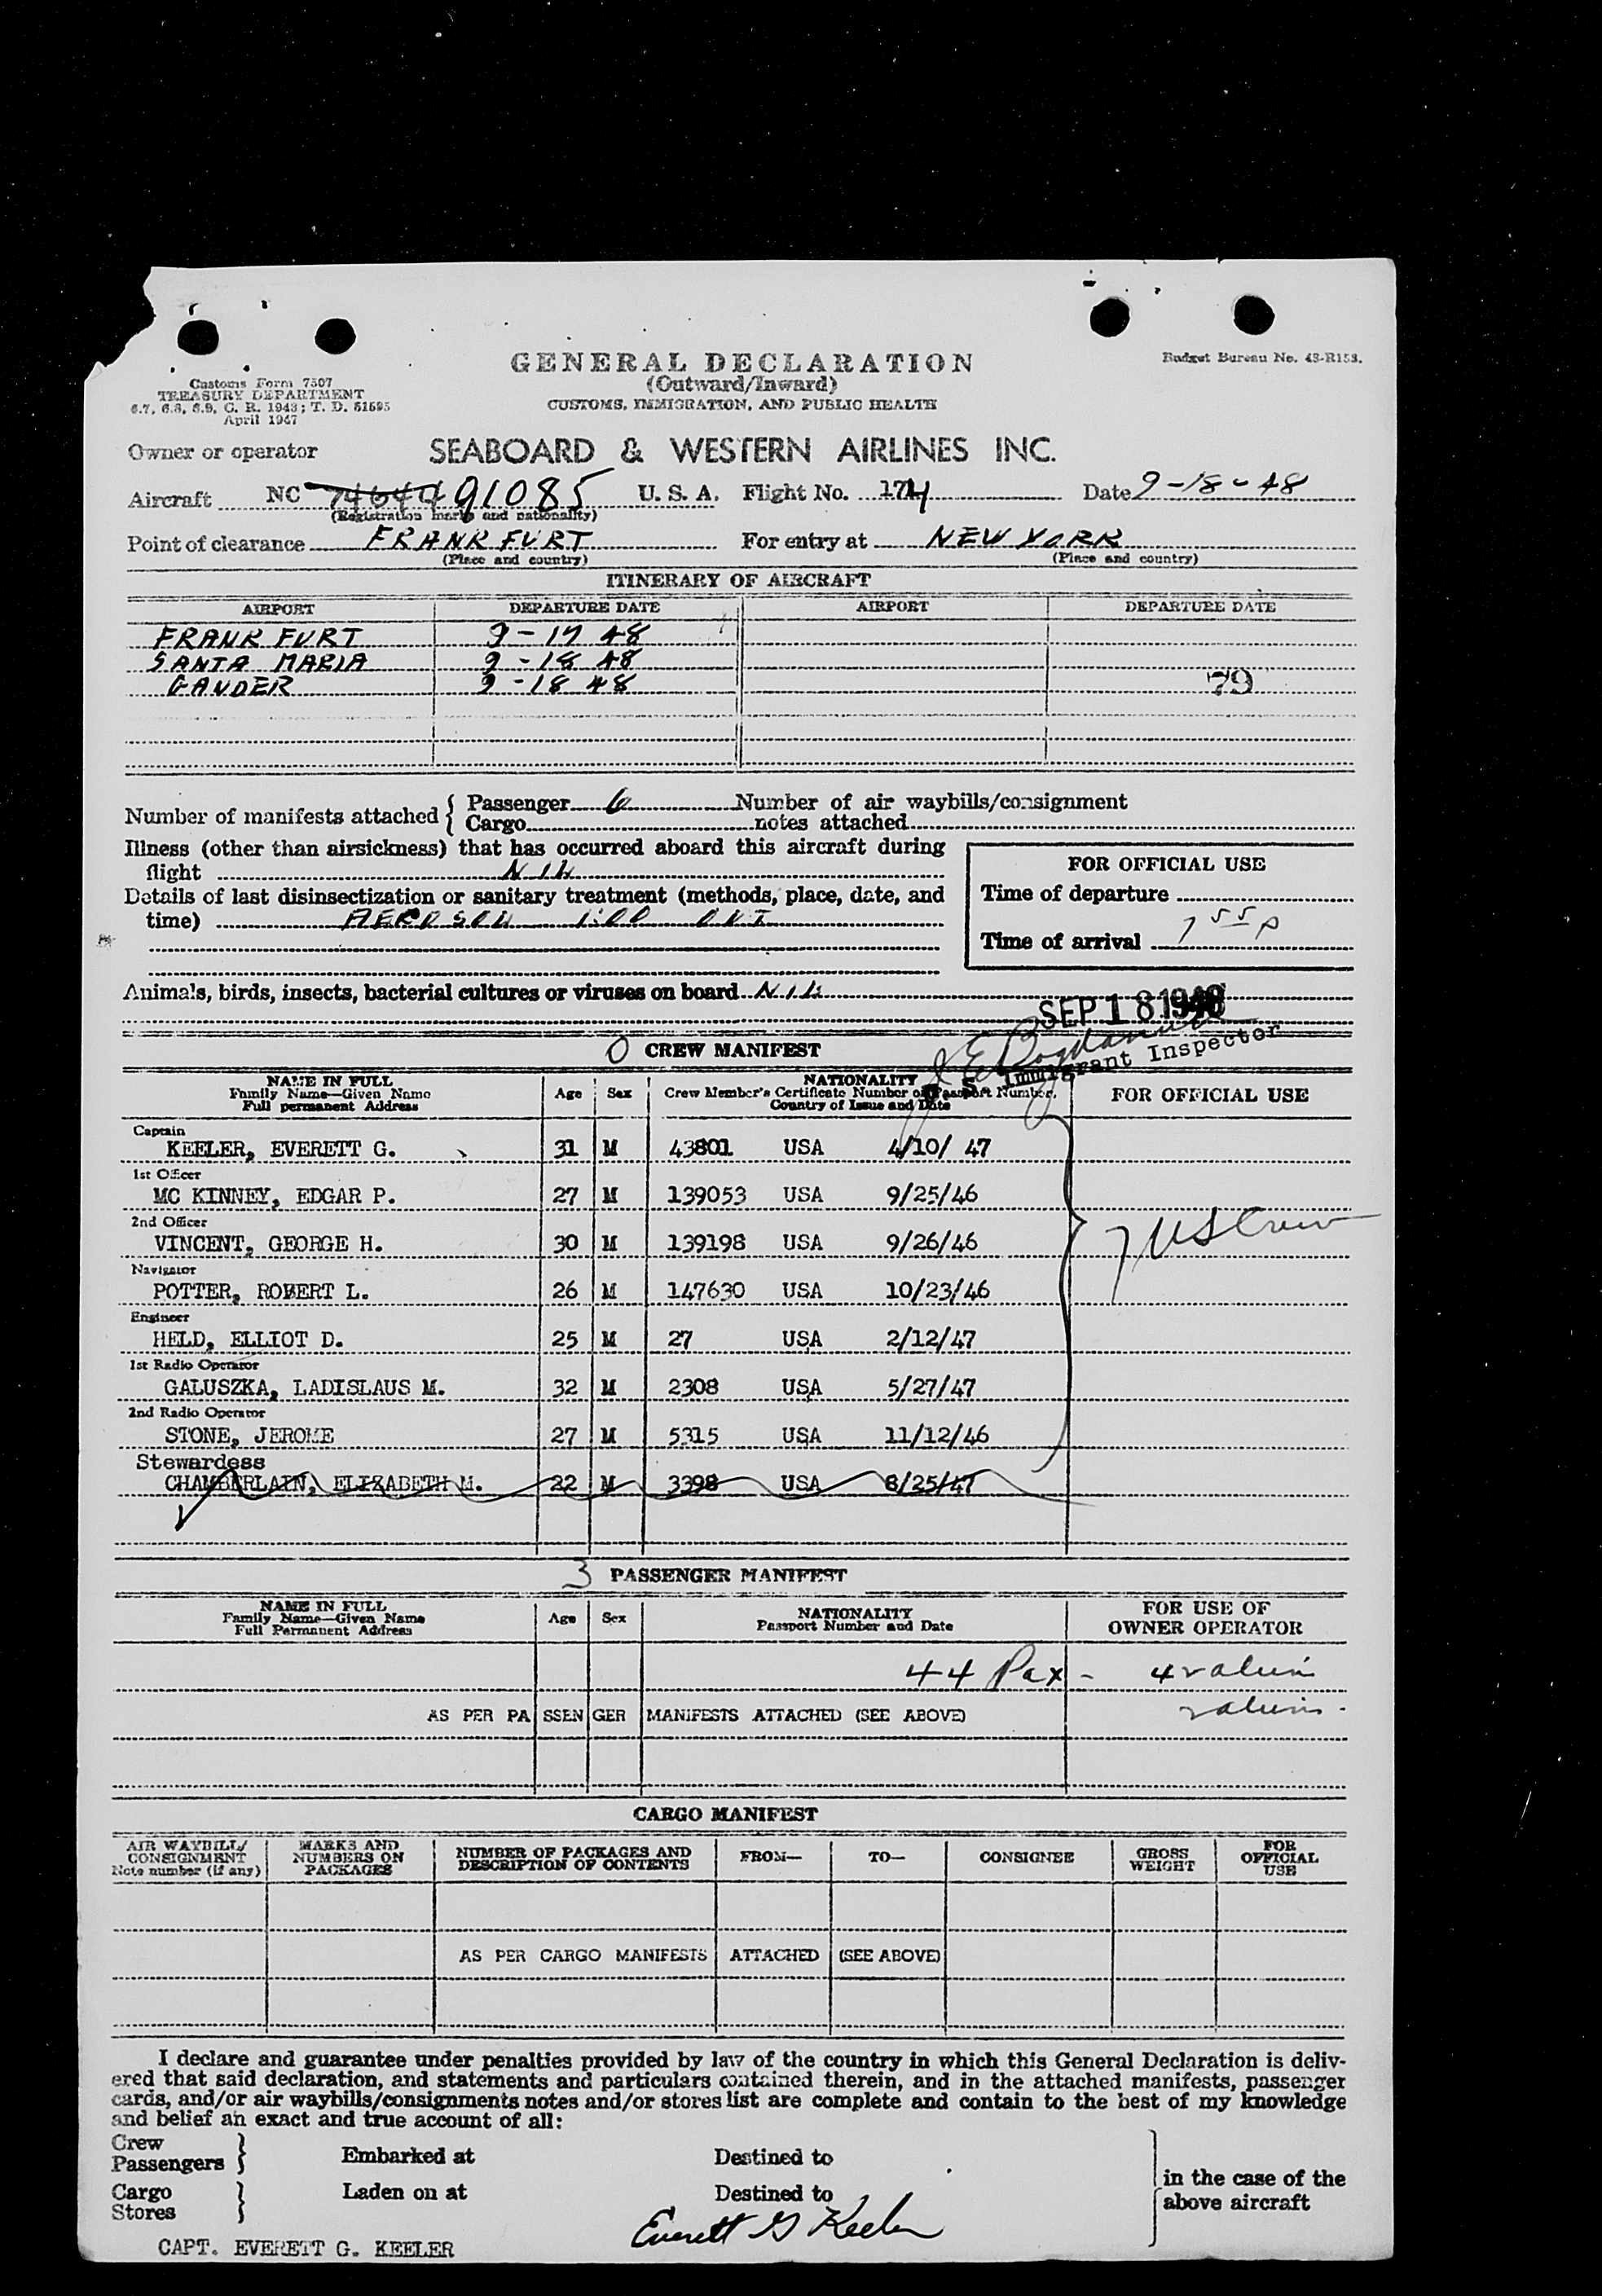 GENERAL DECLARATION
(Outward/Inward)
CUSTOMS, IMMIGRATION, AND PUBLIC HEALTH
Budget Bureau No. 48-R153.
Customs Form 7507
TREASURY DEPARTMENT
6.7, 6.8, 6.9, C. R. 1943; T. D. 51595
April 1947
Owner or operator SEABOARD & WESTERN AIRLINES INC.
Aircraft NC 91085 U. S. A. Flight No. 174 Date 9-18-48
(Registration marks and nationality)
Point of clearance FRANKFURT For entry at NEW YORK
(Place and country) (Place and country)
ITINERARY OF AIRCRAFT
AIRPORT DEPARTURE DATE AIRPORT DEPARTURE DATE
FRANKFURT 9-17 48
SANTA MARIA 9-18 48
GANDER 9-18 48 79
Number of manifests attached { Passenger 6 Number of air waybills/consignment
Cargo notes attached
Illness (other than airsickness) that has occurred aboard this aircraft during
flight NIL
Details of last disinsectization or sanitary treatment (methods, place, date, and
time) AEROSOL
FOR OFFICIAL USE
Time of departure
Time of arrival 7 55 P
Animals, birds, insects, bacterial cultures or viruses on board NIL
SEP 18 1948
Immigrant Inspector
0 CREW MANIFEST
NAME IN FULL
Family Name—Given Name
Full permanent Address
Age Sex
NATIONALITY
Crew Member's Certificate Number or Passport Number,
Country of Issue and Date
FOR OFFICIAL USE
Captain
KEELER, EVERETT G. 31 M 43801 USA 4/10/ 47
1st Officer
MC KINNEY, EDGAR P. 27 M 139053 USA 9/25/46
2nd Officer
VINCENT, GEORGE H. 30 M 139198 USA 9/26/46
7 US Crew
Navigator
POTTER, ROBERT L. 26 M 147630 USA 10/23/46
Engineer
HELD, ELLIOT D. 25 M 27 USA 2/12/47
1st Radio Operator
GALUSZKA, LADISLAUS M. 32 M 2308 USA 5/27/47
2nd Radio Operator
STONE, JEROME 27 M 5315 USA 11/12/46
Stewardess
CHAMBERLAIN, ELIZABETH M. 22 M 3398 USA 8/25/47
3 PASSENGER MANIFEST
NAME IN FULL
Family Name—Given Name
Full Permanent Address
Age Sex
NATIONALITY
Passport Number and Date
FOR USE OF
OWNER OPERATOR
44 Pax - 4
AS PER PASSENGER MANIFESTS ATTACHED (SEE ABOVE)
CARGO MANIFEST
AIR WAYBILL/
CONSIGNMENT
Note number (if any)
MARKS AND
NUMBERS ON
PACKAGES
NUMBER OF PACKAGES AND
DESCRIPTION OF CONTENTS
FROM— TO— CONSIGNEE
GROSS
WEIGHT
FOR
OFFICIAL
USE
AS PER CARGO MANIFESTS ATTACHED (SEE ABOVE)
I declare and guarantee under penalties provided by law of the country in which this General Declaration is deliv-
ered that said declaration, and statements and particulars contained therein, and in the attached manifests, passenger
cards, and/or air waybills/consignments notes and/or stores list are complete and contain to the best of my knowledge
and belief an exact and true account of all:
Crew
Passengers } Embarked at Destined to
Cargo
Stores } Laden on at Destined to
in the case of the
above aircraft
Everett G Keeler
CAPT. EVERETT G. KEELER